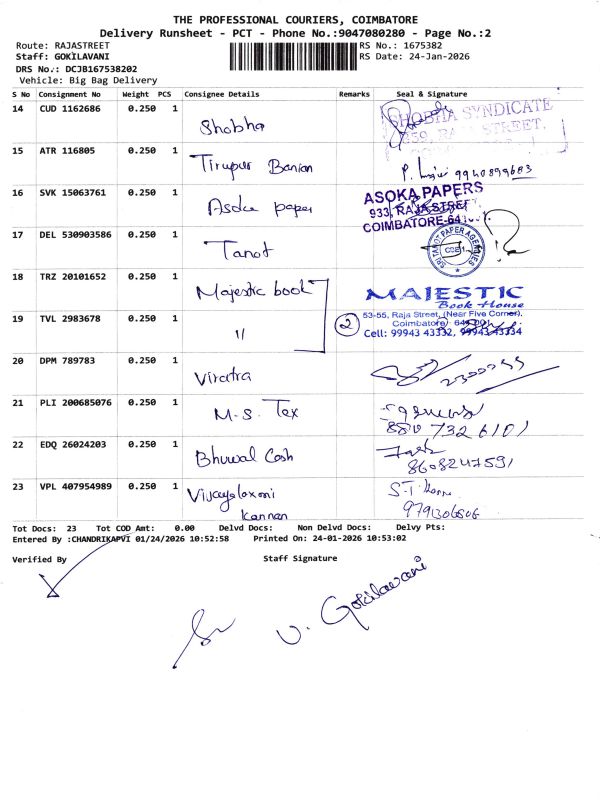 THE PROFESSIONAL COURIERS, COIMBATORE
Delivery Runsheet - PCT - Phone No.:9047080280 - Page No.:2
Route: RAJASTREET
RS No.: 1675382
Staff: GOKILAVANI
RS Date: 24-Jan-2026
DRS No.: DCJB167538202
Vehicle: Big Bag Delivery
S No Consignment No Weight PCS Consignee Details Remarks Seal & Signature
14 CUD 1162686 0.250 1 Shobha
SHOBHA SYNDICATE
RAJA STREET,
15 ATR 116805 0.250 1 Tirupur Banian 9940899683
16 SVK 15063761 0.250 1 Asoka paper
ASOKA PAPERS
933, RAJA STREET,
COIMBATORE-641001.
17 DEL 530903586 0.250 1 Tanot
SRI TANOT PAPER AGENCIES
CBE-1
18 TRZ 20101652 0.250 1 Majestic book
MAJESTIC
Book House
19 TVL 2983678 0.250 1 11 2
53-55, Raja Street, (Near Five Corner),
Coimbatore 641 001
Cell: 99943 43332, 99943 43334
20 DPM 789783 0.250 1 Viratra
21 PLI 200685076 0.250 1 M.S. Tex
880 732 6101
22 EDQ 26024203 0.250 1 Bhuwal Cosh
8608247591
23 VPL 407954989 0.250 1 Vijayalaxmi
Kannan
Tot Docs: 23 Tot COD Amt: 0.00 Delvd Docs: Non Delvd Docs: Delvy Pts:
Entered By :CHANDRIKAPVI 01/24/2026 10:52:58 Printed On: 24-01-2026 10:53:02
Verified By Staff Signature
V. Gokilavani